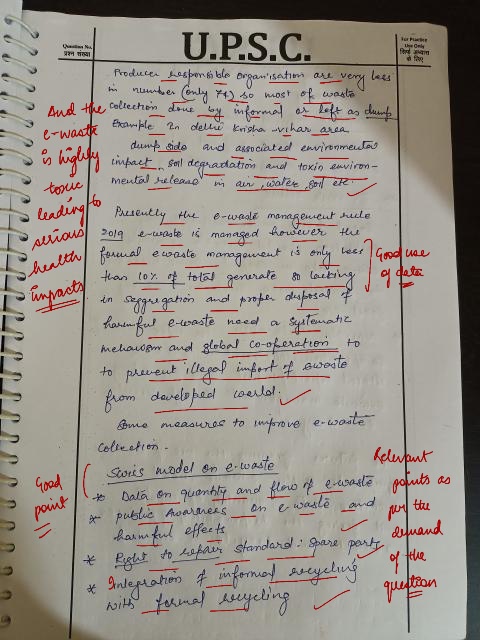 Question No.
प्रश्न संख्या
U.P.S.C.
For Practice
Use Only
सिर्फ अभ्यास
के लिए
Producer responsible organisation are very less
in number (only 74) so most of waste
collection done by informal or left as dump
Example In delhi Krisha-vihar area
dump side and associated environmental
impact, soil degradation and toxin environ-
mental release in air, water, soil etc.
And the
e-waste
is highly
toxic
leading to
serious
health
impacts
Presently the e-waste management rule
2019 e-waste is managed however the
formal ewaste management is only less
than 10% of total generate so lacking
in seggregation and proper disposal of
harmful e-waste need a systematic
mechanism and global co-operation to
to prevent illegal import of ewaste
from developed world.
Good use
of data
Some measures to improve e-waste
collection.
Swiss model on e-waste
* Data on quantity and flow of e-waste
* public Awareness on e waste and
harmful effects
* Right to repair standard: spare part,
* Integration of informal recycling
with formal recycling
Good
point
Relevant
points as
per the
demand
of the
question